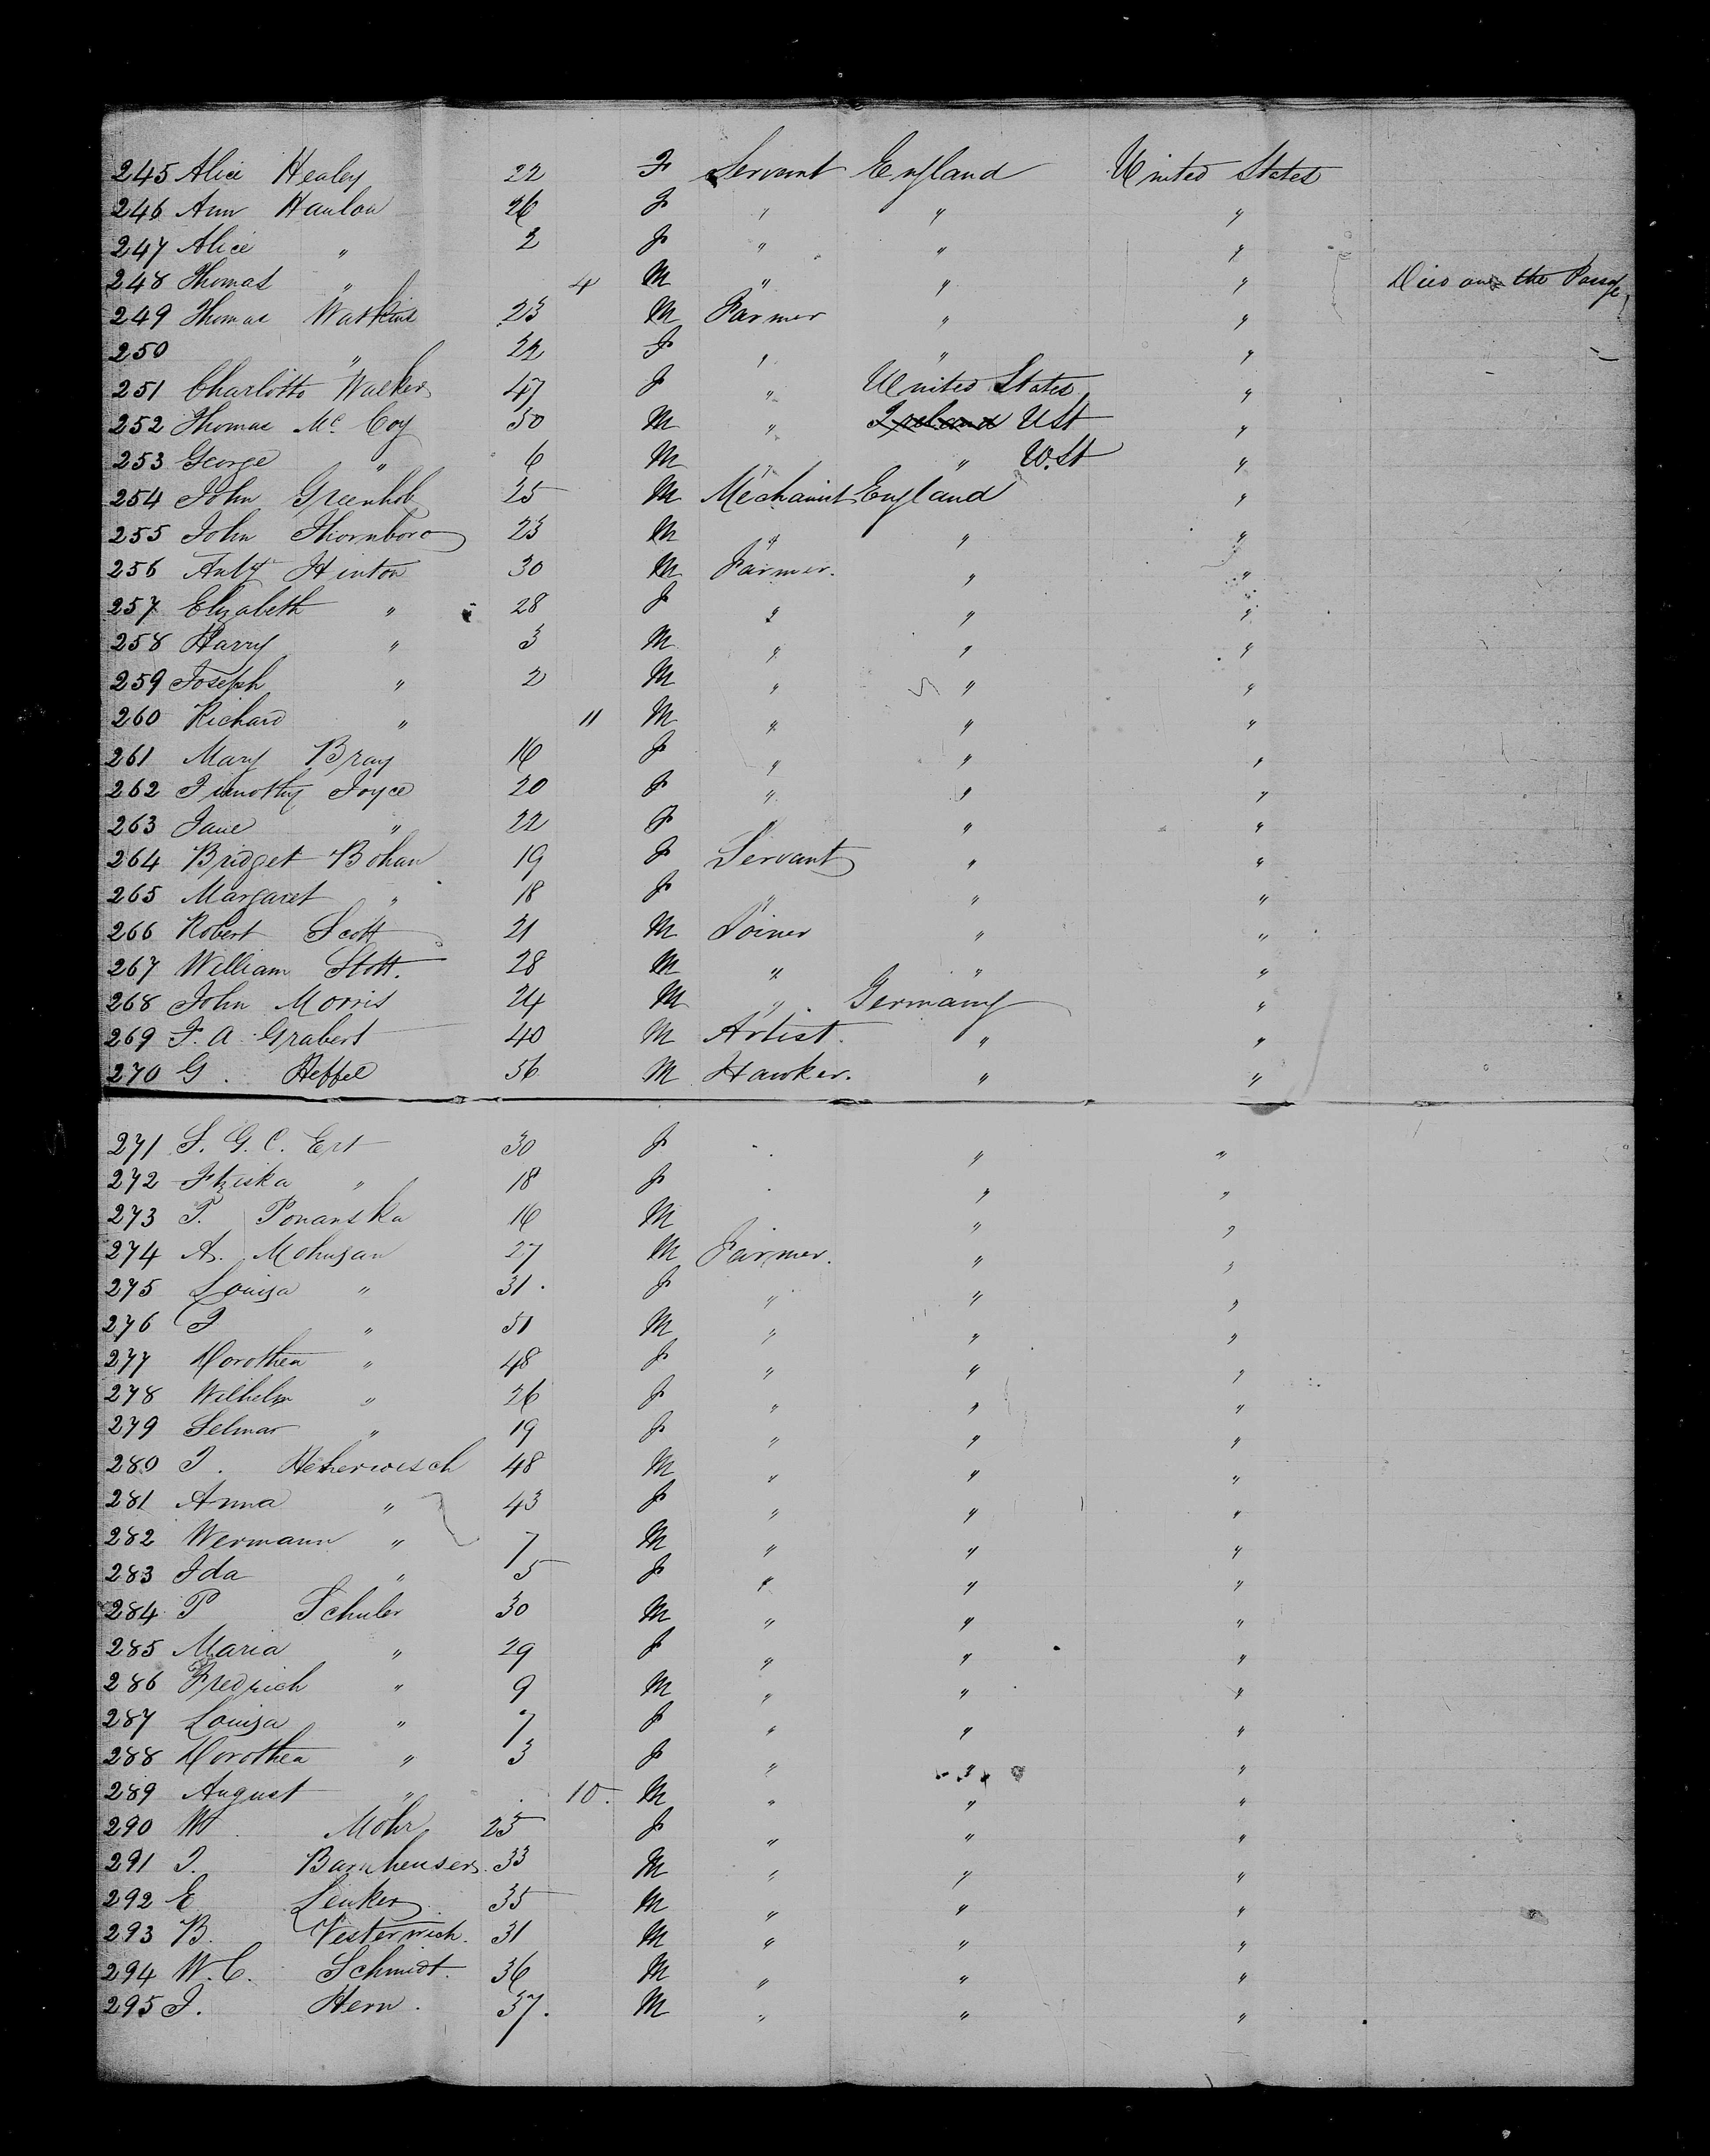 245 Alice Healey 22 F Servant England United States
246 Ann Hanlon 26 F " " "
247 Alice " 2 F " " "
248 Thomas " 4 M " " " Died on the Passge
249 Thomas Watkins 23 M Farmer " "
250 " 22 F " " "
251 Charlotte Walker 47 F " United States "
252 Thomas Mc Coy 50 M " Ireland USt "
253 George " 6 M " " U.St "
254 John 25 M Mechanist England "
255 John Thornboro 23 M " " "
256 Anty Hinton 30 M Farmer. " "
257 Elizabeth " 28 F " " "
258 Harry " 3 M " " "
259 Joseph " 2 M " " "
260 Richard " 11 M " " "
261 Mary Bray 16 F " " "
262 Timothy Joyce 20 F " " "
263 Jane " 22 F " " "
264 Bridget Bohan 19 F Servant " "
265 Margaret " 18 F " " "
266 Robert Scott 21 M Joiner " "
267 William Stott. 28 M " " "
268 John Morris 24 M " Germany "
269 F. A. Grabert 40 M Artist. " "
270 G. Heffel 56 M Hawker. " "
271 S. G. C. Ert 30 F " "
272 " 18 F " "
273 P. Ponanska 16 M " "
274 A. Mohusan 27 M Farmer. " "
275 Louisa " 31. F " " "
276 J " 51 M " " "
277 Dorothea " 48 F " " "
278 Wilhelm " 26 F " " "
279 Selmar " 19 F " " "
280 J. Heherwisch 48 M " " "
281 Anna " 43 F " " "
282 Wermann " 7 M " " "
283 Ida " 5 F " " "
284 P Schuler 30 M " " "
285 Maria " 29 F " " "
286 Fredrich " 9 M " " "
287 Louisa " 7 F " " "
288 Dorothea " 3 F " " "
289 August " 10. M " " "
290 W Mohr 25 F " " "
291 J. Barnheuser 33 M " " "
292 E Lenker 35 M " " "
293 B. Vesterwich. 31 M " " "
294 W. C. Schmidt. 36 M " " "
295 J. Hern. 37. M " " "